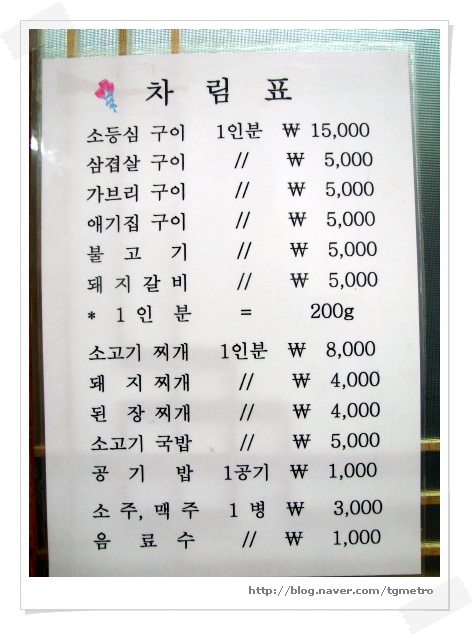 차 림 표
소등심 구이 1인분 ₩ 15,000
삼겹살 구이 // ₩ 5,000
가브리 구이 // ₩ 5,000
애기집 구이 // ₩ 5,000
불 고 기 // ₩ 5,000
돼 지 갈 비 // ₩ 5,000
* 1 인 분 = 200g
소고기 찌개 1인분 ₩ 8,000
돼 지 찌개 // ₩ 4,000
된 장 찌개 // ₩ 4,000
소고기 국밥 // ₩ 5,000
공 기 밥 1공기 ₩ 1,000
소 주, 맥 주 1 병 ₩ 3,000
음 료 수 // ₩ 1,000
http://blog.naver.com/tgmetro